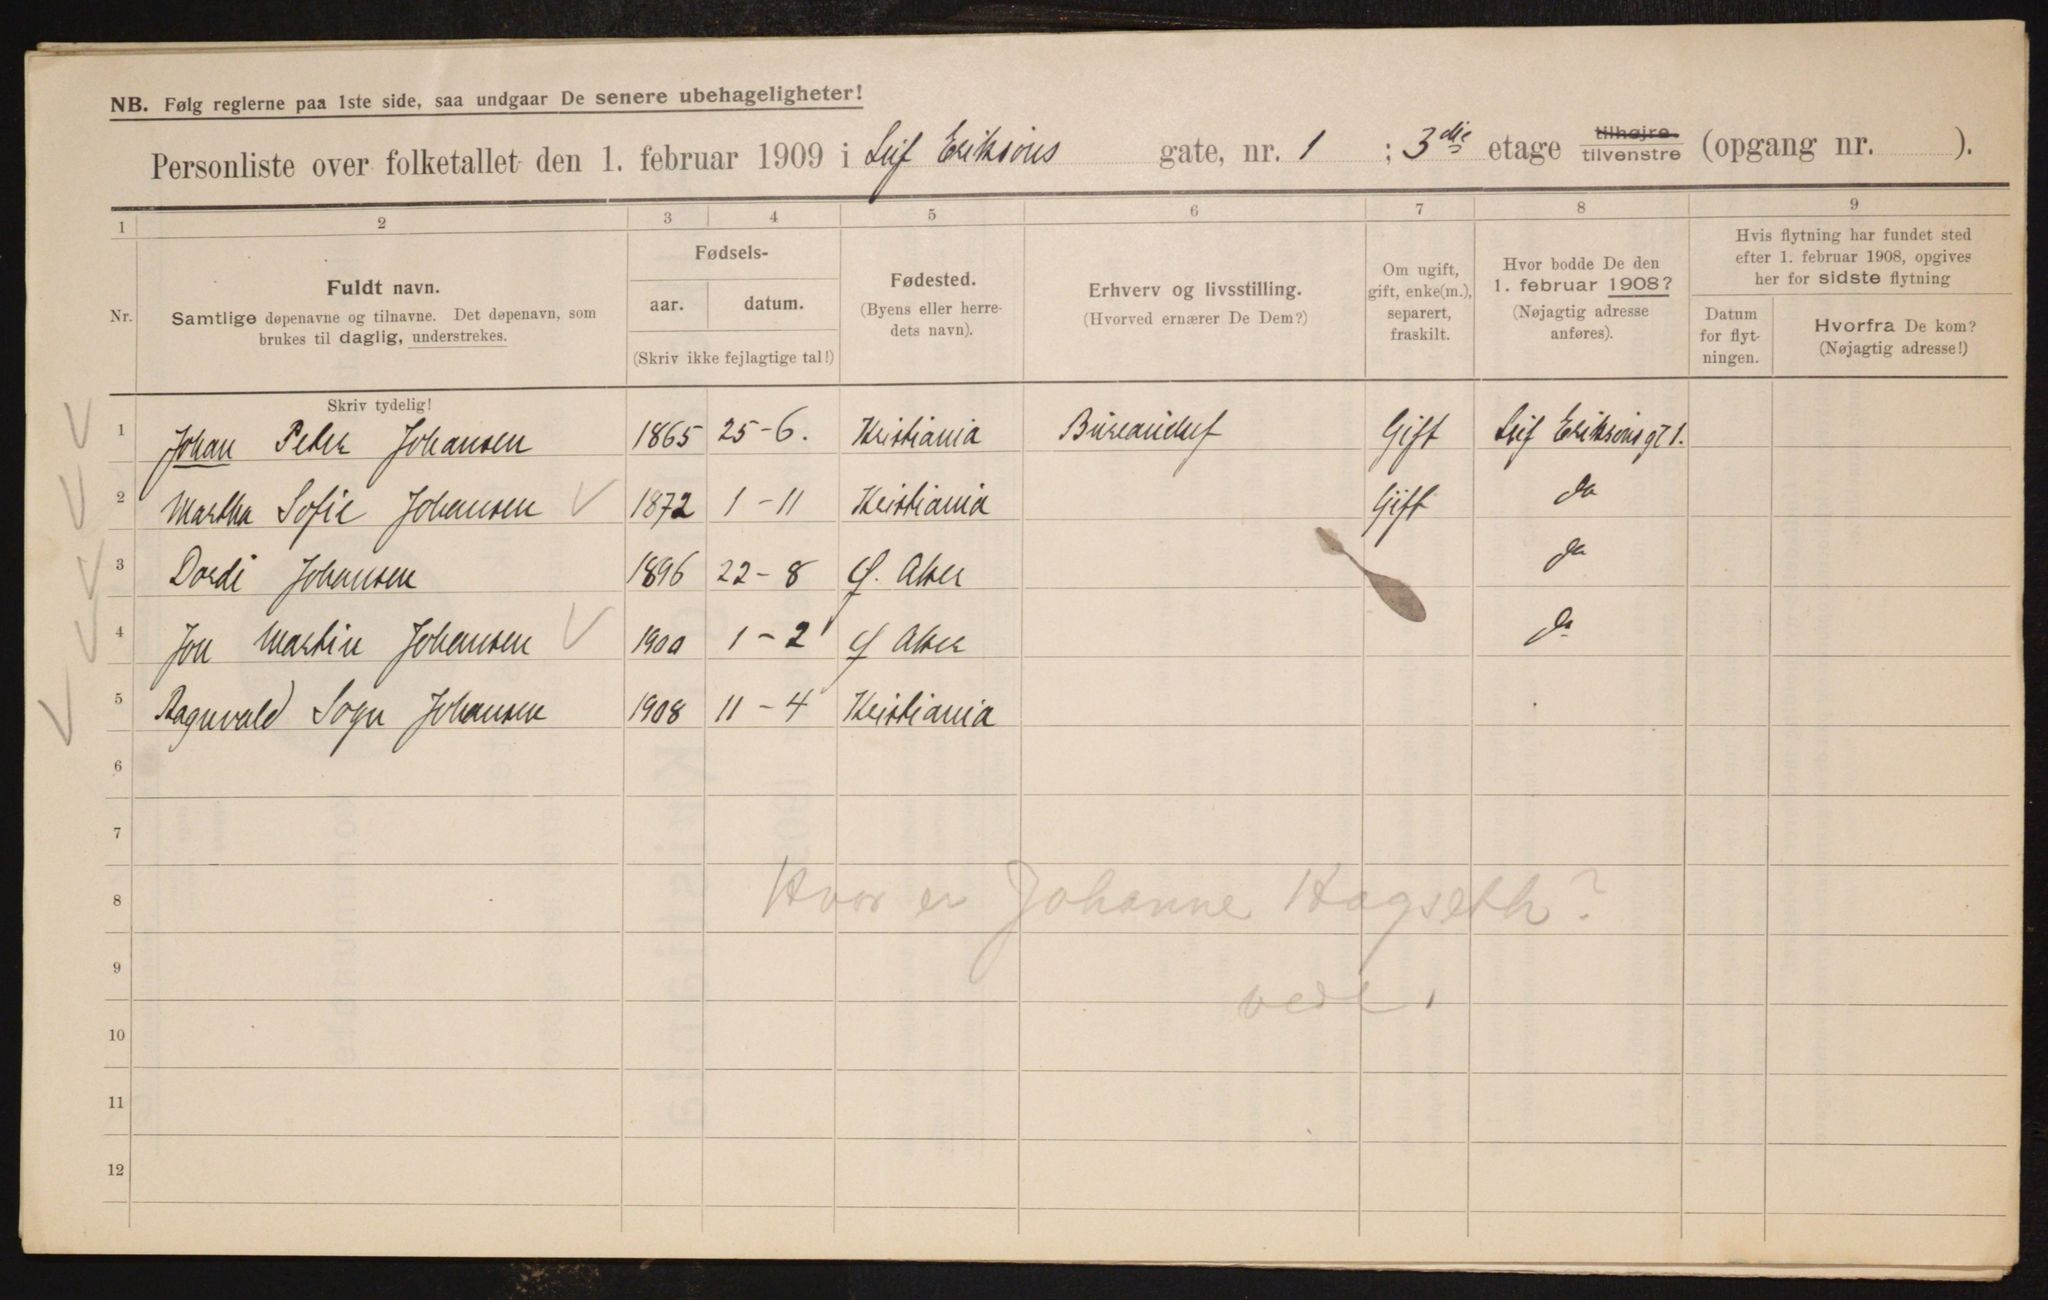 NB. Følg reglerne paa 1ste side, saa undgaar De senere ubehageligheter!
Personliste over folketallet den 1. februar 1909 i Leif Eriksöns gate, nr. 1 ; 3die etage tilhøjre tilvenstre (opgang nr. ).
1 2 3 4 5 6 7 8 9
Nr.
Fuldt navn.
Samtlige døpenavne og tilnavne. Det døpenavn, som
brukes til daglig, understrekes.
Fødsels-
aar. datum.
(Skriv ikke fejlagtige tal!)
Fødested.
(Byens eller herre-
dets navn).
Erhverv og livsstilling.
(Hvorved ernærer De Dem?)
Om ugift,
gift, enke(m.),
separert,
fraskilt.
Hvor bodde De den
1. februar 1908?
(Nøjagtig adresse
anføres).
Hvis flytning har fundet sted
efter 1. februar 1908, opgives
her for sidste flytning
Datum
for flyt-
ningen.
Hvorfra De kom?
(Nøjagtig adresse!)
Skriv tydelig!
1 Johan Peter Johansen 1865 25-6. Kristiania Bureauchef Gift Leif Eriksöns gt 1.
2 Martha Sofie Johansen 1872 1-11 Kristiania Gift do
3 Dordi Johansen 1896 22-8 Ø. Aker do
4 Jon Martin Johansen 1900 1-2 Ø Aker do
5 Ragnvald Sogn Johansen 1908 11-4 Kristiania
6
7
8 Hvor er Johanne Hagseth?
9
10
11
12